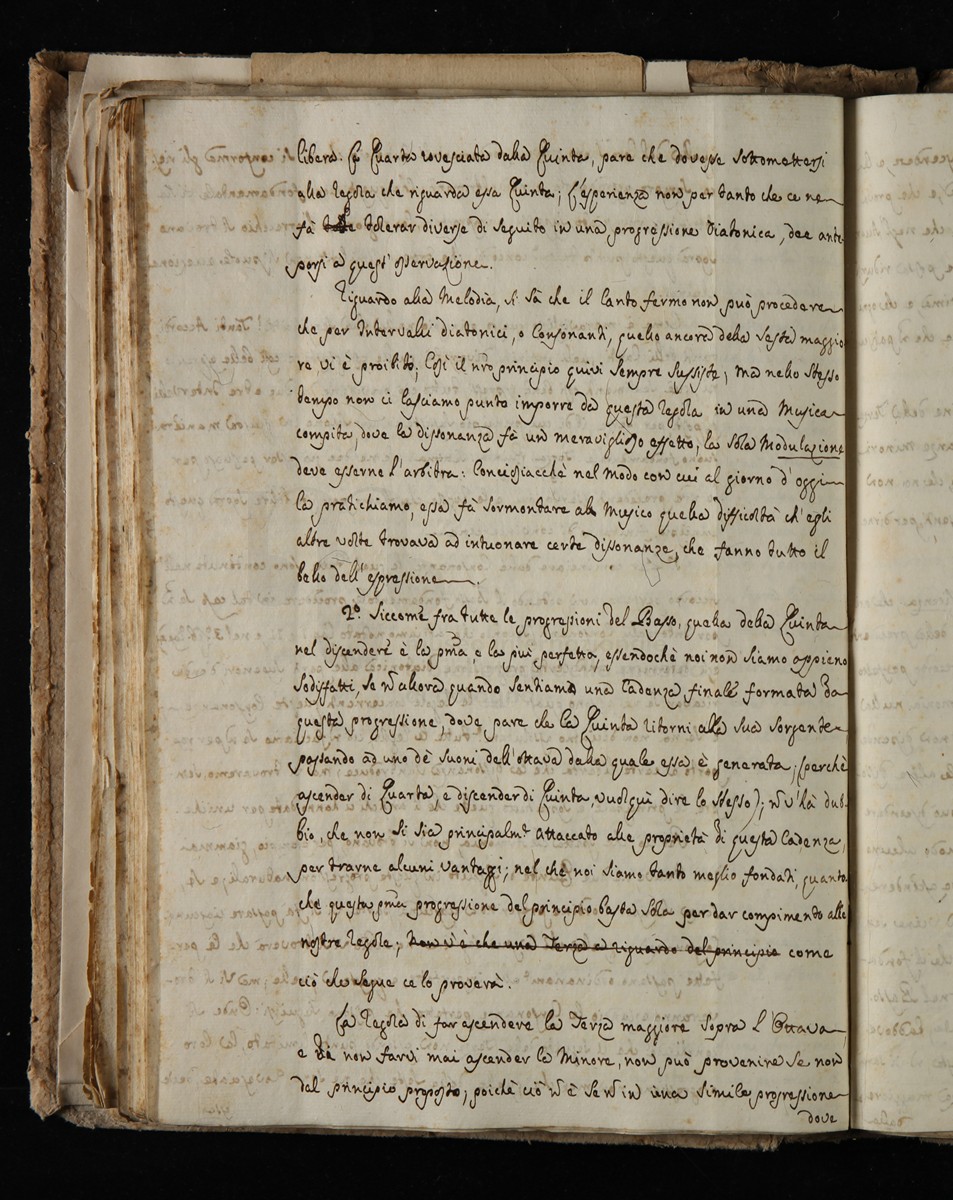 libera. La Quarta rovesciata dalla Quinta, pare che dovesse sottomettersi
alla Regola che riguarda essa Quinta; l'esperienza non per tanto che ce ne
fà tolerar diverse di seguito in una progressione Diatonica, dee ante-
porsi a quest'osservazione.
Riguardo alla Melodia, si sà che il Canto fermo non può procedere
che per Intervalli diatonici, o Consonanti, quello ancora della Sesta maggio
re vi è proibito; Così il nro principio quivi sempre sussiste; ma nello stesso
tempo non ci lasciamo punto imporre da questa Regola in una Musica
compita, dove la dissonanza fà un meraviglioso effetto, la sola Modulazione
deve esserne l'arbitra: Conciosiacchè nel modo con cui al giorno d'oggi
la pratichiamo, essa fà sormontare al Musico quella difficoltà ch'egli
altre volte trovava ad intuonare certe dissonanze, che fanno tutto il
bello dell'espressione.
2º. Siccome fra tutte le progressioni del Basso, quella della Quinta
nel discendere è la pma, e la più perfetta, essendochè noi non siamo appieno
sodisfatti, se n allora quando sentiamo una Cadenza finale formata da
questa progressione, dove pare che la Quinta ritorni alla sua sorgente
passando ad uno dè suoni dell'ottava dalla quale essa è generata; (perchè
ascender di Quarta, e discender di Quinta, vuol quì dire lo stesso); n v'hà dub-
bio, che non si sia principalmte attaccato alle proprietà di questa Cadenza,
per trarne alcuni vantaggi; nel che noi siamo tanto meglio fondati, quanto
che questa pma progressione del principio basta sola per dar compimento alle
nostre Regole; non vi è che una Terza a riguardo del principio come
ciò che segue ce lo proverà.
La Regola di far ascendere la Terza maggiore sopra l'Ottava,
e di non farvi mai ascender la Minore, non può provenire se non
dal principio proposto; poichè ciò n è se n in una simile progressione
dove